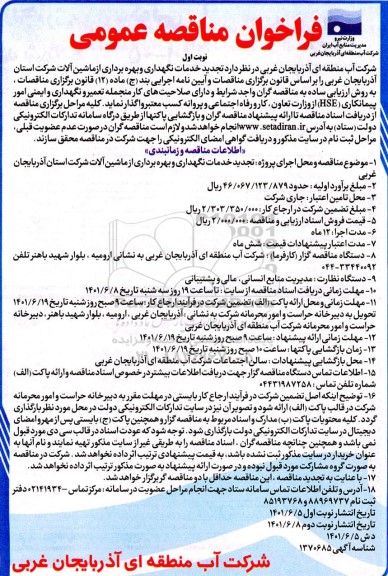 وزارت نیرو
مدیریت منابع آب ایران
شرکت آب منطقه ای آذربایجان غربی
فراخوان مناقصه عمومی
نوبت اول
شرکت آب منطقه ای آذربایجان غربی در نظر دارد تجدید خدمات نگهداری و بهره برداری از ماشین آلات شرکت استان
آذربایجان غربی را بر اساس قانون برگزاری مناقصات و آیین نامه اجرایی بند (ج) ماده (۱۲) قانون برگزاری مناقصات ،
به روش ارزیابی ساده به مناقصه گران واجد شرایط و دارای صلاحیت های کار منجمله تعمیر و نگهداری و ایمنی امور
پیمانکاری (HSE) از وزارت تعاون ، کار و رفاه اجتماعی و پروانه کسب معتبر واگذار نماید. کلیه مراحل برگزاری مناقصه
از دریافت اسناد مناقصه تا ارائه پیشنهاد مناقصه گران و بازگشایی پاکتها از طریق درگاه سامانه تدارکات الکترونیکی
دولت (ستاد) به آدرس www.setadiran.ir انجام خواهد شد و لازم است مناقصه گران در صورت عدم عضویت قبلی،
مراحل ثبت نام در سایت مذکور و دریافت گواهی امضای الکترونیکی را جهت شرکت در مناقصه محقق سازند.
«اطلاعات مناقصه و زمانبندی»
۱- موضوع مناقصه و محل اجرای پروژه : تجدید خدمات نگهداری و بهره برداری از ماشین آلات شرکت استان آذربایجان
غربی
۲- مبلغ برآورد اولیه : حدود ۴۶/۰۶۷/۱۲۳/۸۷۹ ریال
۳- محل تامین اعتبار : جاری شرکت
۴- مبلغ تضمین شرکت در ارجاع کار : ۲/۳۰۳/۳۵۰/۰۰۰ ریال
۵- قیمت فروش اسناد ارزیابی و مناقصه : ۲/۰۰۰/۰۰۰ ریال
۶- مدت اجرا : ۱۲ ماه
۷- مدت اعتبار پیشنهادات قیمت : شش ماه
۸- دستگاه مناقصه گزار (کارفرما) : شرکت آب منطقه ای آذربایجان غربی به نشانی ارومیه ، بلوار شهید باهنر تلفن
۰۴۴-۳۳۴۴۰۰۹۲
۹- دستگاه نظارت : مدیریت منابع انسانی ، مالی و پشتیبانی
۱۰- مهلت زمانی دریافت اسناد مناقصه از سایت : تا ساعت ۱۹ روز سه شنبه تاریخ ۱۴۰۱/۶/۸
۱۱- مهلت زمانی و محل ارائه پاکت (الف) تضمین شرکت در فرآیند ارجاع کار : ساعت ۹ صبح روز شنبه تاریخ ۱۴۰۱/۶/۱۹
تحویل به دبیرخانه حراست و امور محرمانه شرکت به نشانی : آذربایجان غربی ، ارومیه ، بلوار شهید باهنر ، دبیرخانه
حراست و امور محرمانه شرکت آب منطقه ای آذربایجان غربی
۱۲- مهلت زمانی ارائه پیشنهاد : ساعت ۹ صبح روز شنبه تاریخ ۱۴۰۱/۶/۱۹
۱۳- زمان بازگشایی پاکتها : ساعت ۱۰ صبح روز شنبه تاریخ ۱۴۰۱/۶/۱۹
۱۴- محل بازگشایی پیشنهادات : سالن اجتماعات شرکت آب منطقه ای آذربایجان غربی
۱۵- اطلاعات تماس دستگاه مناقصه گزار جهت دریافت اطلاعات بیشتر در خصوص اسناد مناقصه و ارائه پاکت (الف)
شماره تلفن تماس : ۰۴۴۳۱۹۸۷۲۵۸
۱۶- توضیح اینکه اصل تضمین شرکت در فرآیند ارجاع کار بایستی در مهلت مقرر به دبیرخانه حراست و امور محرمانه
شرکت در قالب پاکت (الف) ارائه شود و تصویر آن نیز در سایت تدارکات الکترونیکی دولت در محل مورد نظر بارگذاری
گردد. کلیه محتویات پاکت (ب) مدارک و اسناد مربوط به مناقصه گزار و همچنین پاکت (ج) بایستی پس از مهر و امضای
دیجیتال در سایت تدارکات الکترونیکی دولت بارگذاری شود. توجه شود که عودت اسناد در قالب سی دی مورد قبول
نمی باشد و همچنین چنانچه مناقصه گران ، اسناد مناقصه را به طریقی غیر از سایت مذکور تهیه نمایند و نام آنها به
عنوان خریدار در سایت ثبت نشده باشد، به قیمت پیشنهادی ترتیب اثر داده نخواهد شد. شرکت در مناقصه
به صورت گروه مشارکت مورد قبول نبوده و در صورت ارائه پیشنهاد به صورت مذکور ترتیب اثر داده نخواهد شد.
۱۷- با عنایت به تجدید مناقصه ، این مناقصه حداقل با دو مناقصه گر برگزار خواهد شد.
۱۸- آدرس و تلفن اطلاعات تماس سامانه ستاد جهت انجام مراحل عضویت در سامانه : مرکز تماس ۴۱۹۳۴-۰۲۱ دفتر
ثبت نام ۸۸۹۶۹۷۳۷ و ۸۵۱۹۳۷۶۸
تاریخ انتشار نوبت اول ۱۴۰۱/۶/۵
تاریخ انتشار نوبت دوم ۱۴۰۱/۶/۸
د ش ۱۴۰۱/۶/۵
شناسه آگهی ۱۳۷۰۶۸۵
شرکت آب منطقه ای آذربایجان غربی